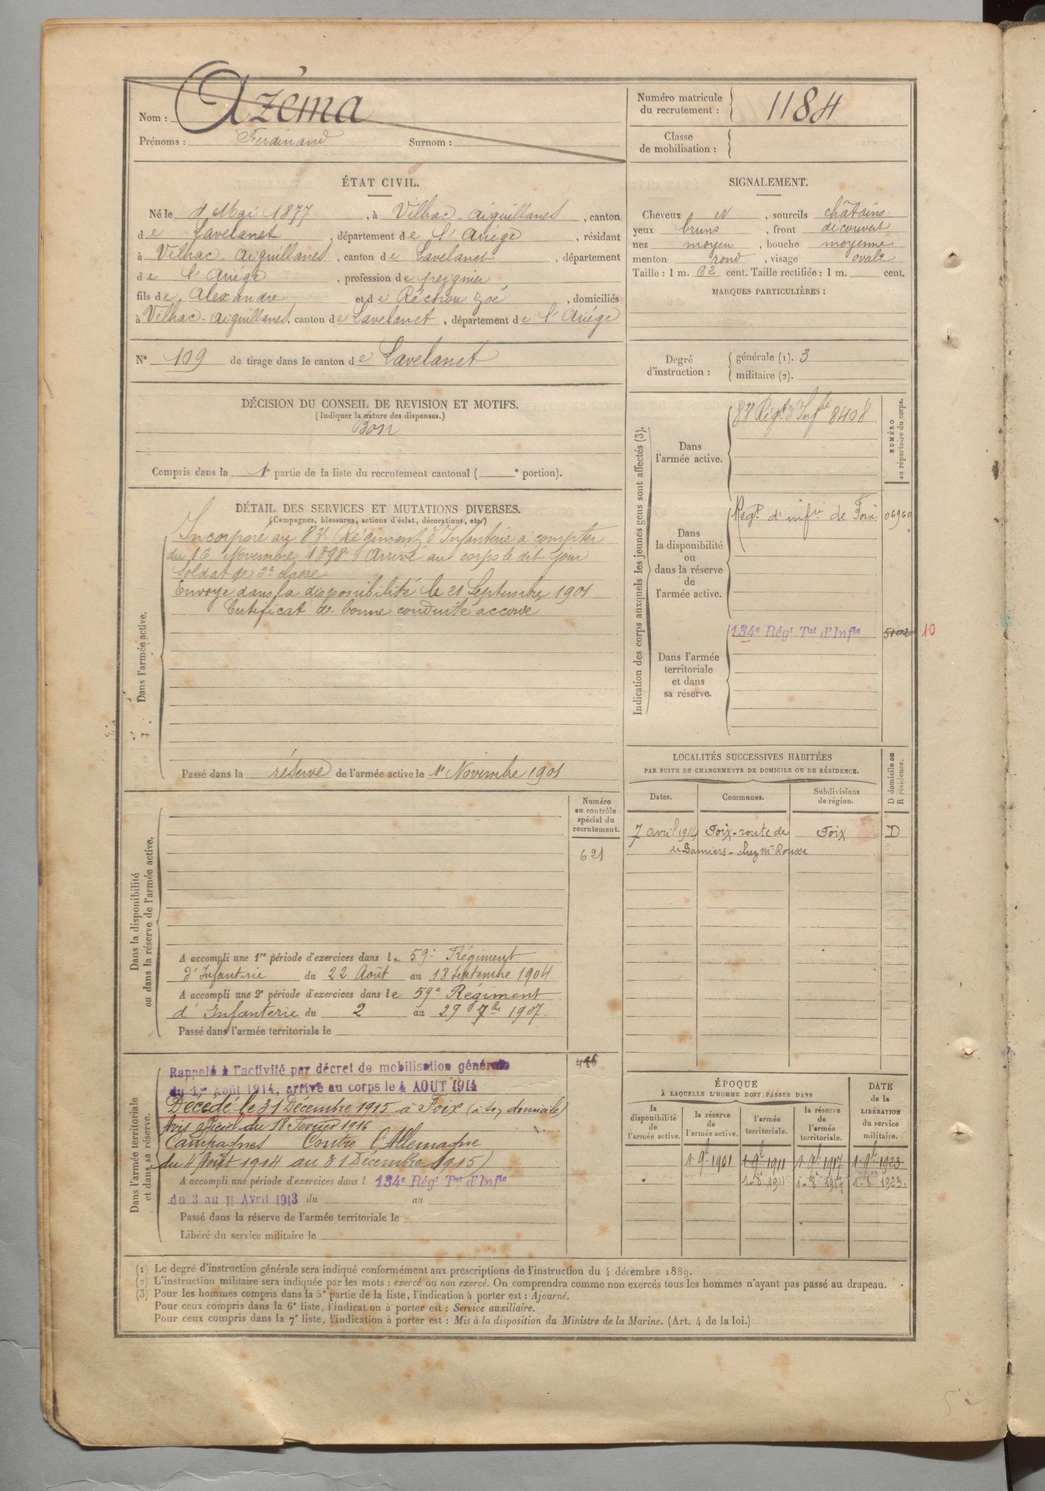 Nom : Azéma
Prénoms : Ferdinand Surnom :
Numéro matricule du recrutement : 1184
Classe de mobilisation :
ÉTAT CIVIL.
Né le 4 Mai 1877, à Vilhac-Aiguillanes, canton
de Lavelanet, département de l'Ariége, résidant
à Vilhac Aiguillanes, canton de Lavelanet, département
de l'Ariége, profession de peignier
fils de Alexandre et de Zoé, domiciliés
à Vilhac-Aiguillanes, canton de Lavelanet, département de l'Ariége
N° 109 de tirage dans le canton de Lavelanet
SIGNALEMENT.
Cheveux et, sourcils châtains
yeux bruns, front découvert
nez moyen, bouche moyenne
menton rond, visage ovale
Taille : 1 m. 62 cent. Taille rectifiée : 1 m. cent.
MARQUES PARTICULIÈRES :
Degré d'instruction : générale (1). 3
militaire (2).
DÉCISION DU CONSEIL DE REVISION ET MOTIFS.
(Indiquer la nature des dispenses.)
Bon
Compris dans la 1e partie de la liste du recrutement cantonal ( e portion).
DÉTAIL DES SERVICES ET MUTATIONS DIVERSES.
(Campagnes, blessures, actions d'éclat, décorations, etc.)
Dans l'armée active.
Incorporé au 83e Régiment d'Infanterie à compter
du 16 Novembre 1898 Arrivé au corps le dit jour
Soldat de 2e classe
Envoyé dans la disponibilité le 21 Septembre 1901
Certificat de bonne conduite accordé
Passé dans la réserve de l'armée active le 1er Novembre 1901
Indication des corps auxquels les jeunes gens sont affectés (3).
NUMÉRO au répertoire du corps.
Dans l'armée active.
83e Régt d'Infrie 8408
Dans la disponibilité ou dans la réserve de l'armée active.
Regt d'infrie de Foix 06960
Dans l'armée territoriale et dans sa réserve.
134e Régt Tal d'Infie 5102 10
LOCALITÉS SUCCESSIVES HABITÉES
PAR SUITE DE CHANGEMENTS DE DOMICILE OU DE RÉSIDENCE.
Dates. Communes. Subdivisions de région. D domicile ou R résidence.
7 avril 1914 Foix-route de Foix D
de Pamiers - chez Mme Rousse
Dans la disponibilité ou dans la réserve de l'armée active.
Numéro au contrôle spécial du recrutement.
621
A accompli une 1re période d'exercices dans le 59e Régiment
d'Infanterie du 22 Août au 18 septembre 1904
A accompli une 2e période d'exercices dans le 59e Régiment
d'Infanterie du 2 au 29 7bre 1907.
Passé dans l'armée territoriale le
Dans l'armée territoriale et dans sa réserve.
446
Rappelé à l'activité par décret de mobilisation générale
du 1er Août 1914, arrivé au corps le 4 AOUT 1914
Décédé le 31 Décembre 1915 à Foix (à son domicile)
Avis officiel du 18 Février 1916
Campagnes Contre l'Allemagne
du 4 Août 1914 au 31 Décembre 1915)
A accompli une période d'exercices dans l 134e Régt Tal d'Infie
du 3 au 11 Avril 1913 du au
Passé dans la réserve de l'armée territoriale le
Libéré du service militaire le
ÉPOQUE
À LAQUELLE L'HOMME DOIT PASSER DANS
la disponibilité de l'armée active. la réserve de l'armée active. l'armée territoriale. la réserve de l'armée territoriale.
DATE de la LIBÉRATION du service militaire.
1 9bre 1901 1 9bre 1911 1 9bre 1917 1 9bre 1923
1er 8bre 1911 1er 8bre 1917 1er 8bre 1923.
(1) Le degré d'instruction générale sera indiqué conformément aux prescriptions de l'instruction du 4 décembre 1889.
(2) L'instruction militaire sera indiquée par les mots : exercé ou non exercé. On comprendra comme non exercés tous les hommes n'ayant pas passé au drapeau.
(3) Pour les hommes compris dans la 5e partie de la liste, l'indication à porter est : Ajourné.
Pour ceux compris dans la 6e liste, l'indication à porter est : Service auxiliaire.
Pour ceux compris dans la 7e liste, l'indication à porter est : Mis à la disposition du Ministre de la Marine. (Art. 4 de la loi.)